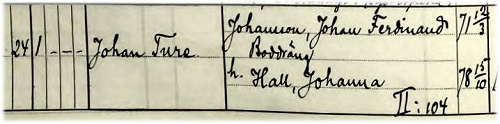 Johansson, Johan Ferdinand 71 12/3
24 1 - - - Johan Ture Boddräng
h. Hall, Johanna 78 15/10
II: 104